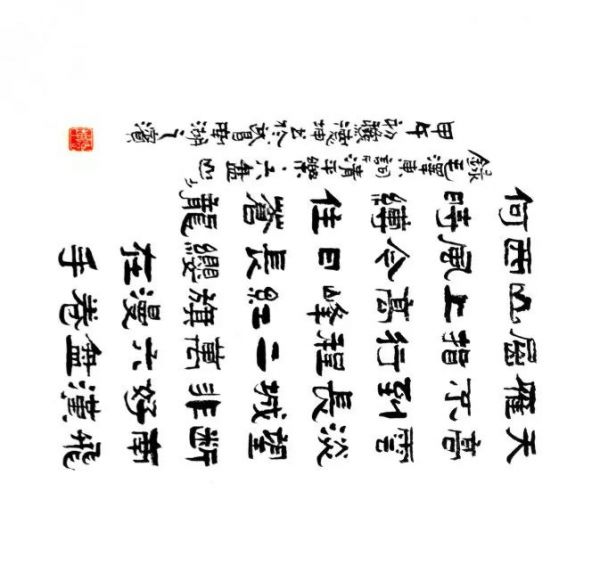 天高雲淡望斷南飛
雁不到長城非好漢
屈指行程二萬六盘
山上高峰紅旗漫卷
西風今日長纓在手
何時縛住蒼龍
錄毛澤東詞清平樂·六盘山
甲午初 坤書於 湖之濱